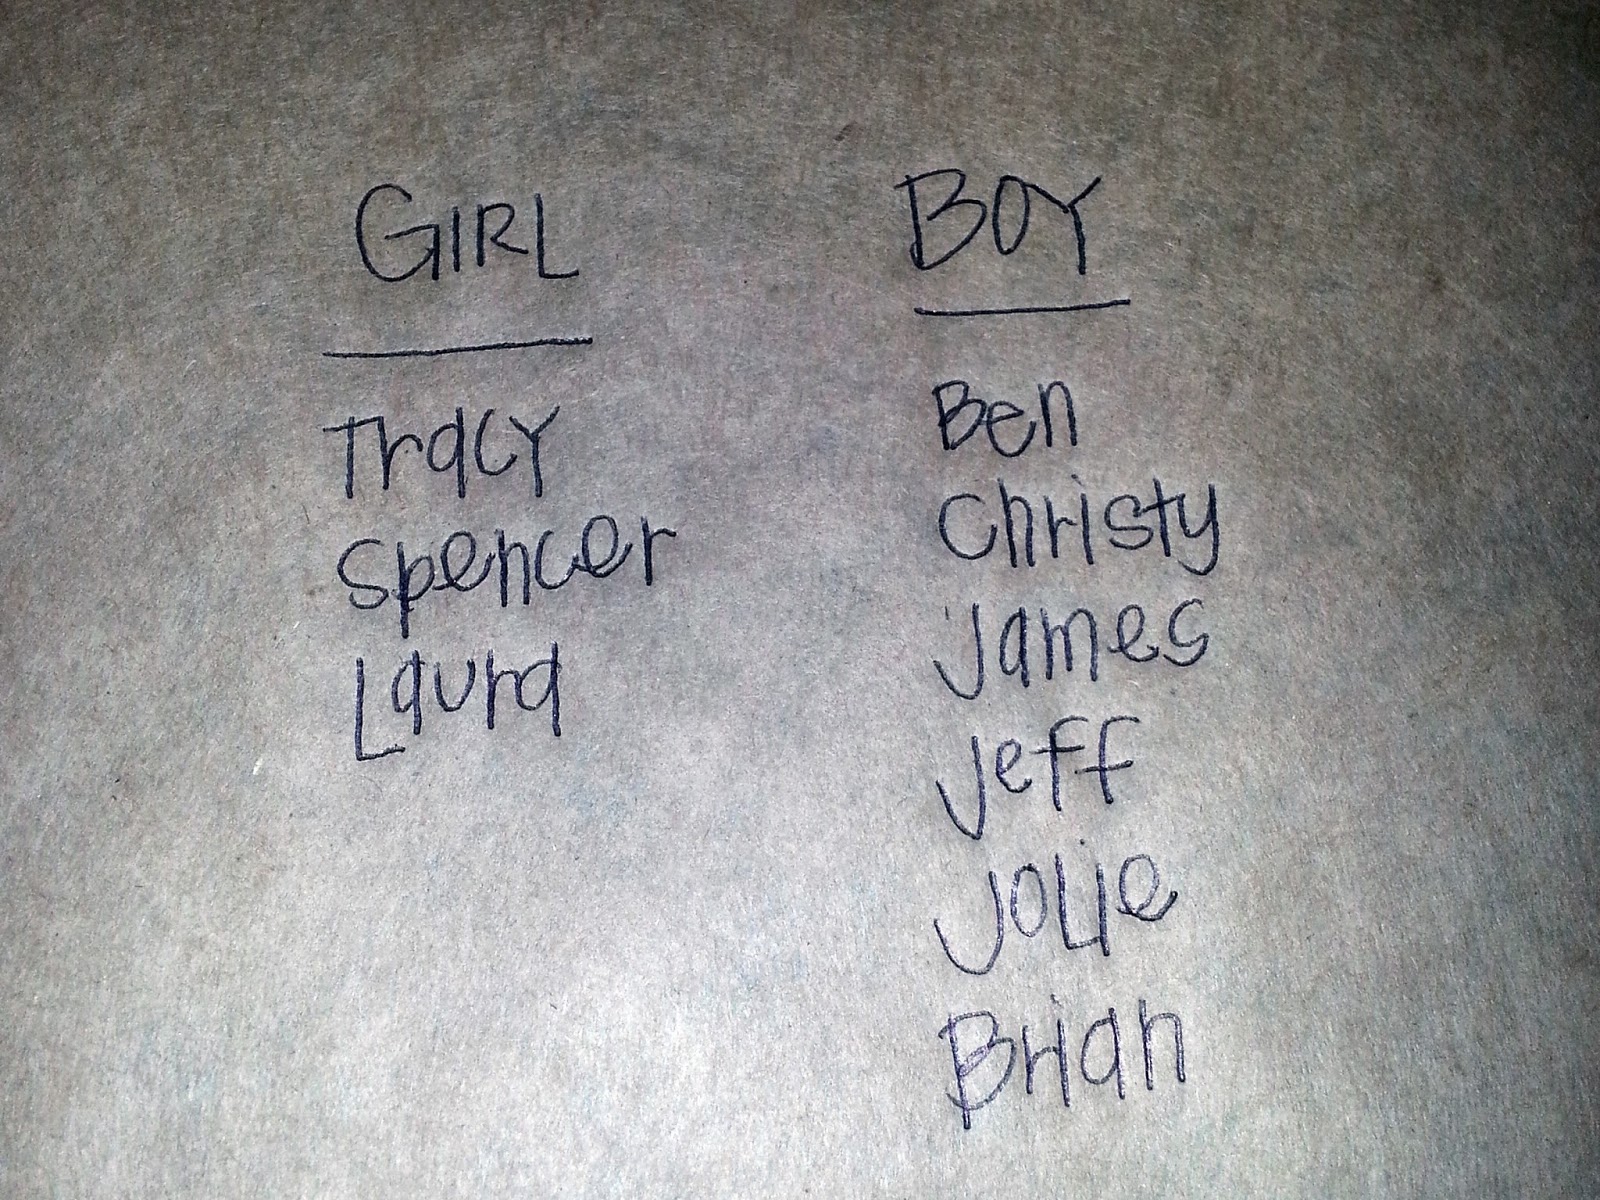 GIRL
Tracy
Spencer
Laura
BOY
Ben
Christy
James
Jeff
Jolie
Brian